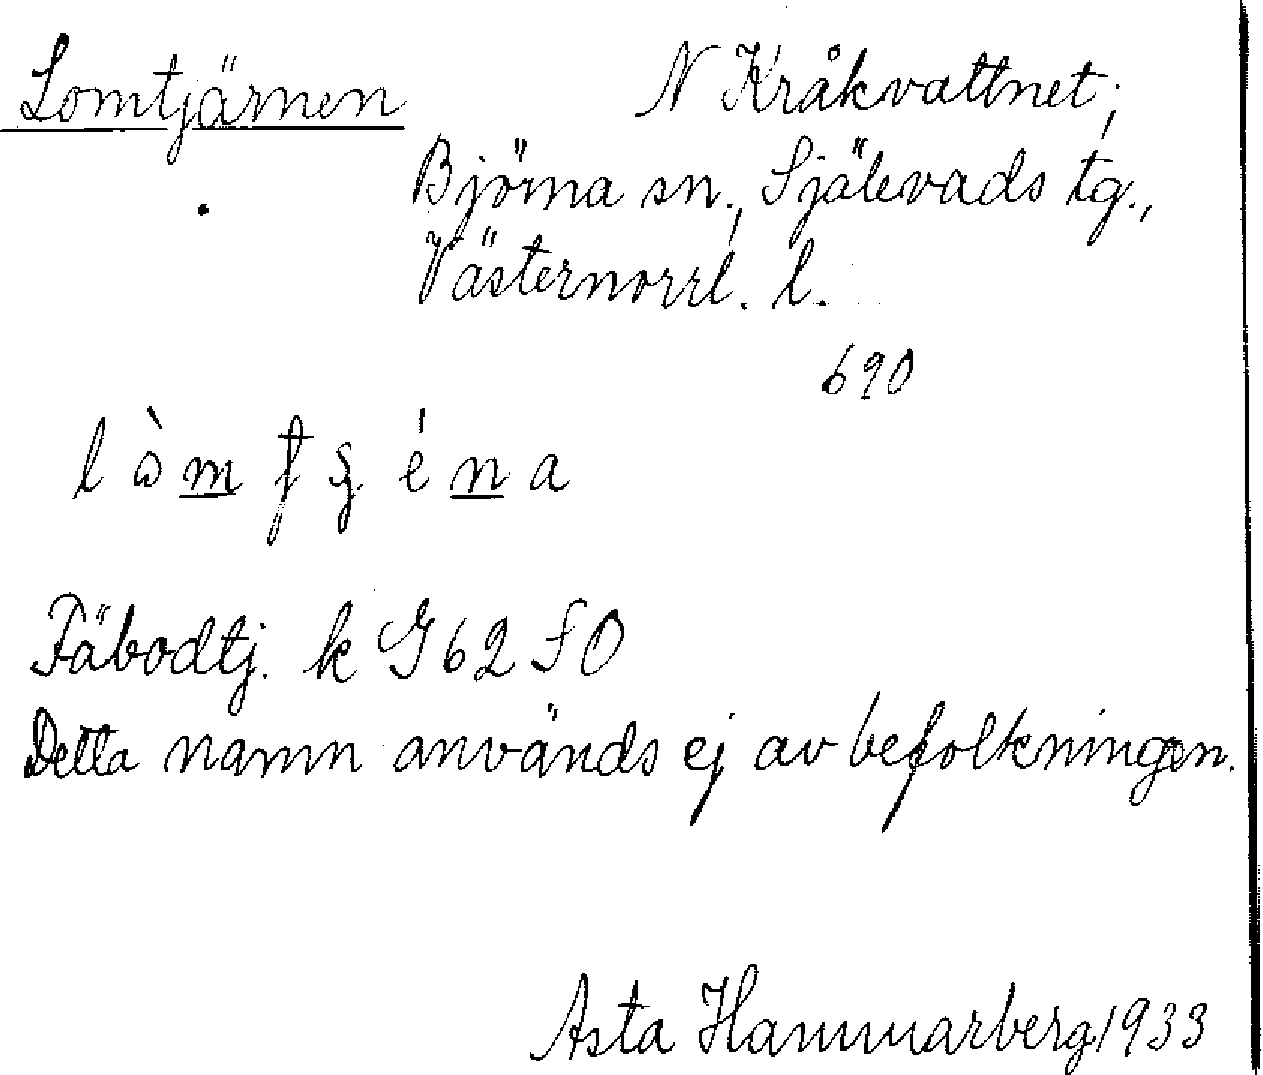 Lomtjärnen N Kråkvattnet,
Björna sn., Själevads tg.,
Västernorrl. l.
690
Fäbodtj. k G 62 S O
Detta namn används ej av befolkningen.
Asta Hammarberg 1933